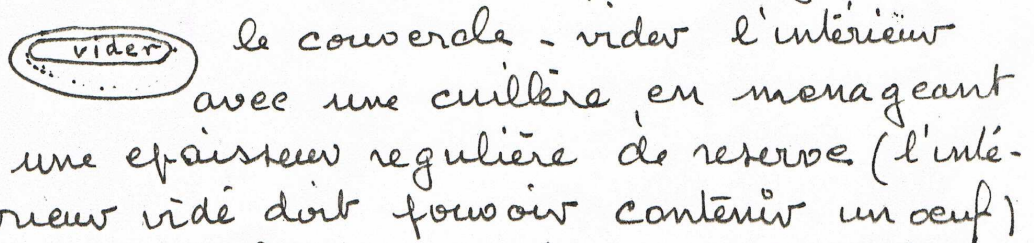 vider le couvercle - vider l'intérieur
avec une cuillère en menageant
une epaisseur regulière de reserve (l'inté-
rieur vidé doit pouvoir contenir un oeuf)